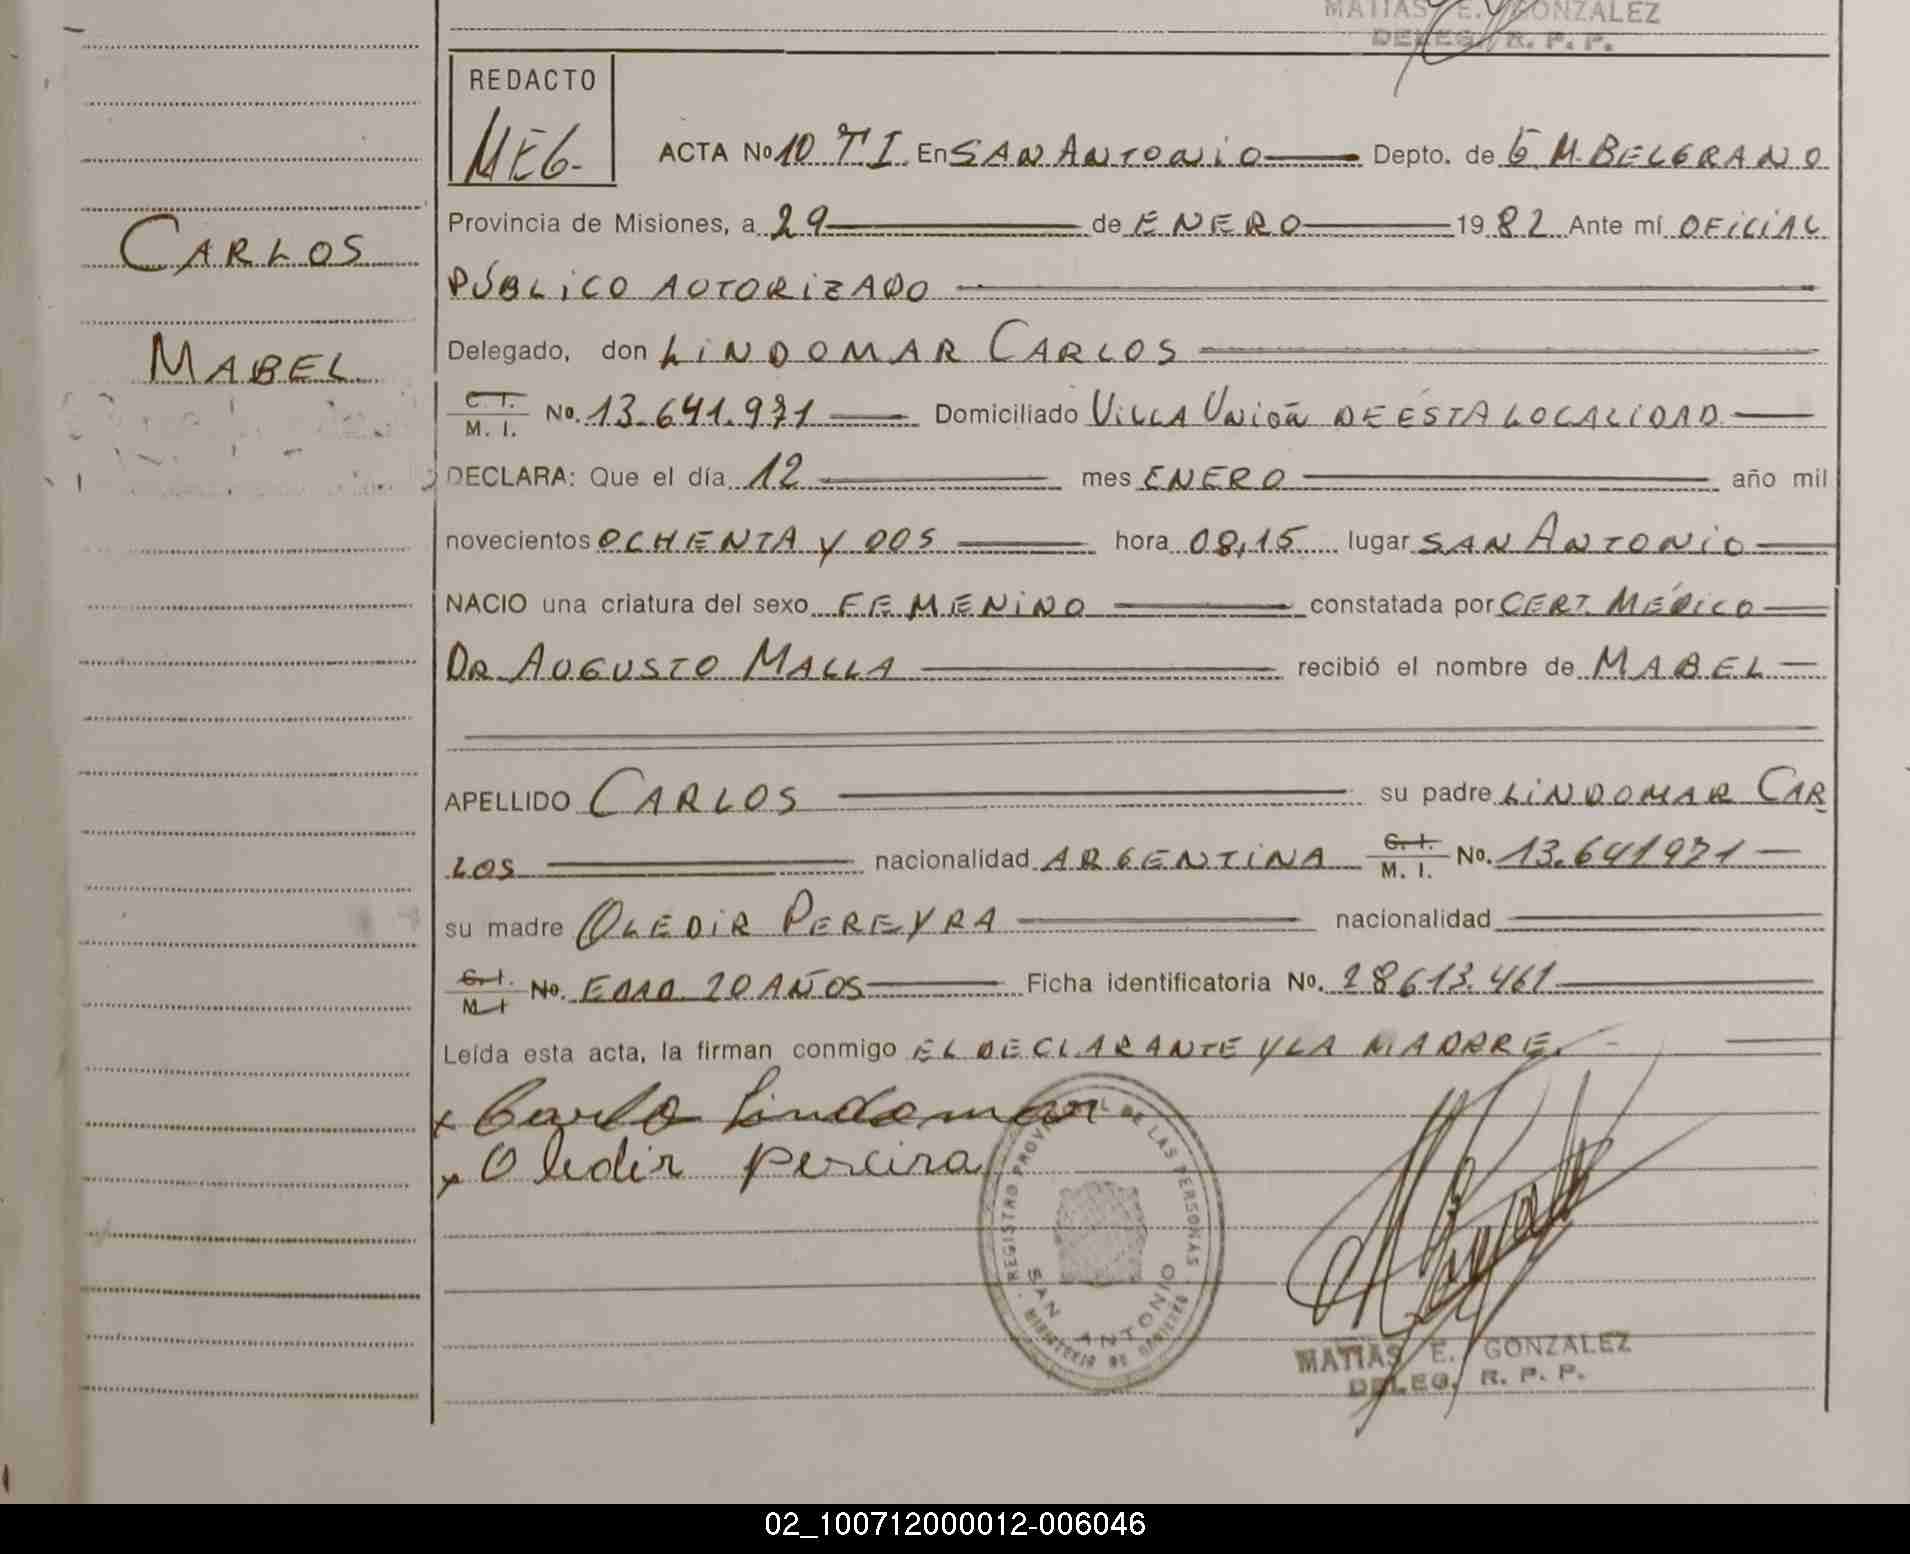 MATIAS E. GONZALEZ
DELEG. R. P. P.
REDACTO
MEG.
ACTA No 10 TI. En SAN ANTONIO Depto. de G M. BELGRANO
Provincia de Misiones, a 29 de ENERO 1982 Ante mí OFICIAL
PÚBLICO AUTORIZADO
CARLOS
MABEL
Delegado, don LINDOMAR CARLOS
C. I. / M. I. No. 13.641.971 Domiciliado VILLA UNIÓN DE ÉSTA LOCALIDAD
DECLARA: Que el día 12 mes ENERO año mil
novecientos OCHENTA Y DOS hora 08,15 lugar SAN ANTONIO
NACIO una criatura del sexo FEMENINO constatada por CERT. MÉDICO
DR AUGUSTO MALLA recibió el nombre de MABEL
APELLIDO CARLOS su padre LINDOMAR CAR
LOS nacionalidad ARGENTINA C. I. / M. I. No. 13.641971
su madre OLEDIR PEREYRA nacionalidad
C. I. / M I No. EDAD 20 AÑOS Ficha identificatoria No. 28613.461
Leída esta acta, la firman conmigo EL DECLARANTE Y LA MADRE.
x Carlo Lindomar
x Oledir pereira
REGISTRO PROVINCIAL DE LAS PERSONAS
SAN ANTONIO
MINISTERIO DE GOBIERNO
MATIAS E. GONZALEZ
DELEG. R. P. P.
02_100712000012-006046